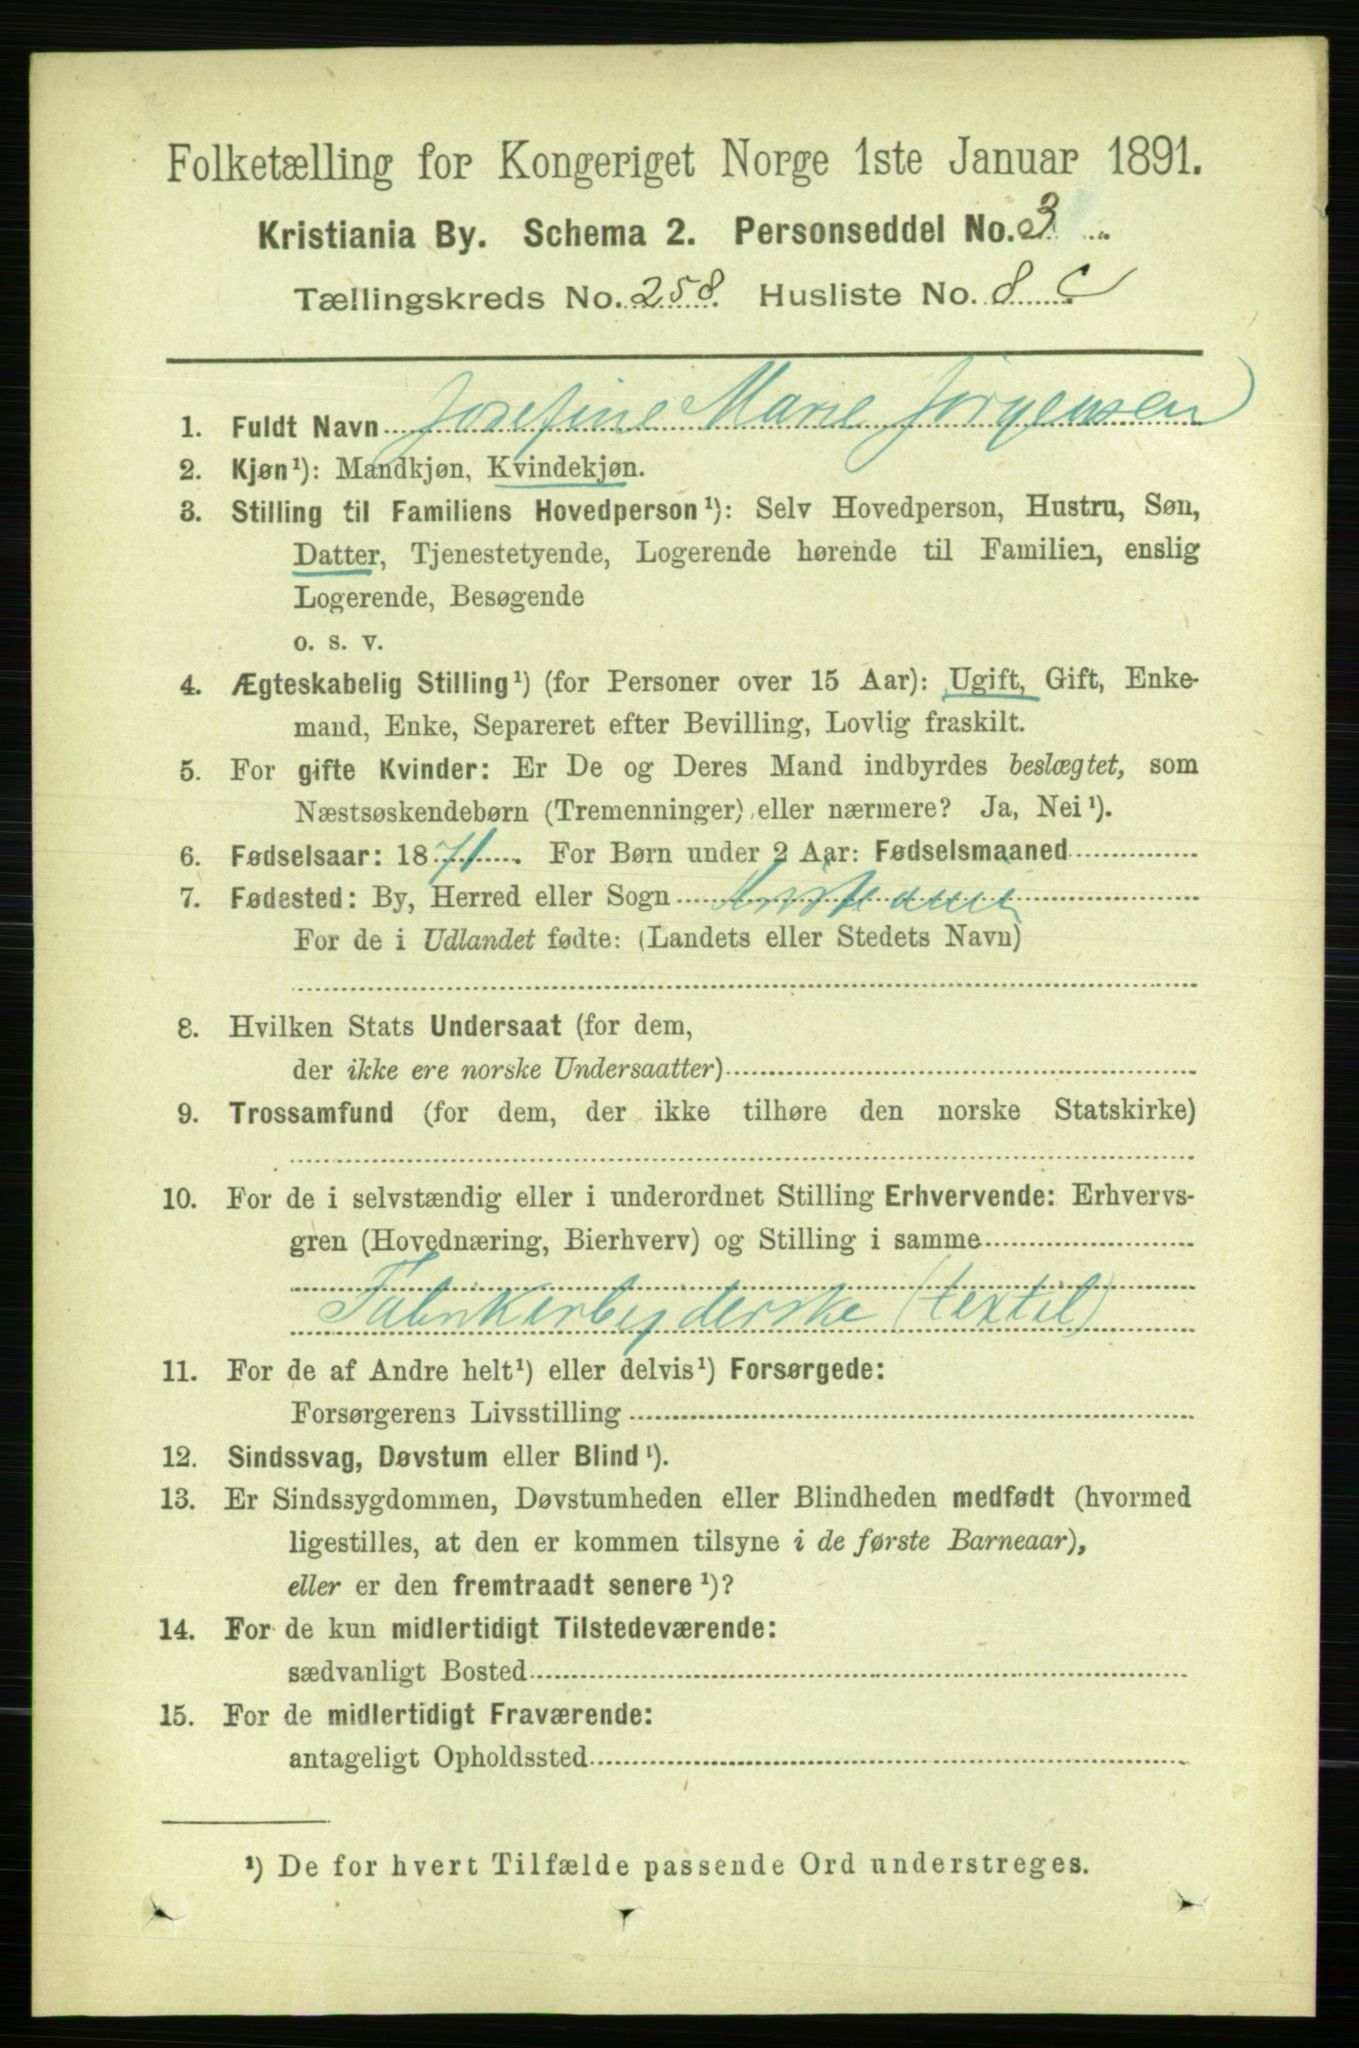 Folketælling for Kongeriget Norge 1ste Januar 1891.
Kristiania By. Schema 2. Personseddel No. 3
Tællingskreds No. 258 Husliste No. 8 C
1. Fuldt Navn Josefine Marie Jörgensen
2. Kjøn¹): Mandkjøn, Kvindekjøn.
3. Stilling til Familiens Hovedperson¹): Selv Hovedperson, Hustru, Søn,
Datter, Tjenestetyende, Logerende hørende til Familien, enslig
Logerende, Besøgende
o. s. v.
4. Ægteskabelig Stilling¹) (for Personer over 15 Aar): Ugift, Gift, Enke-
mand, Enke, Separeret efter Bevilling, Lovlig fraskilt.
5. For gifte Kvinder: Er De og Deres Mand indbyrdes beslægtet, som
Næstsøskendebørn (Tremenninger) eller nærmere? Ja, Nei¹).
6. Fødselsaar: 1871. For Børn under 2 Aar: Fødselsmaaned
7. Fødested: By, Herred eller Sogn Kristiania
For de i Udlandet fødte: (Landets eller Stedets Navn)
8. Hvilken Stats Undersaat (for dem,
der ikke ere norske Undersaatter)
9. Trossamfund (for dem, der ikke tilhøre den norske Statskirke)
10. For de i selvstændig eller i underordnet Stilling Erhvervende: Erhvervs-
gren (Hovednæring, Bierhverv) og Stilling i samme
Fabrikarbejderske (textil)
11. For de af Andre helt¹) eller delvis¹) Forsørgede:
Forsørgerens Livsstilling
12. Sindssvag, Døvstum eller Blind¹).
13. Er Sindssygdommen, Døvstumheden eller Blindheden medfødt (hvormed
ligestilles, at den er kommen tilsyne i de første Barneaar),
eller er den fremtraadt senere¹)?
14. For de kun midlertidigt Tilstedeværende:
sædvanligt Bosted
15. For de midlertidigt Fraværende:
antageligt Opholdssted
¹) De for hvert Tilfælde passende Ord understreges.